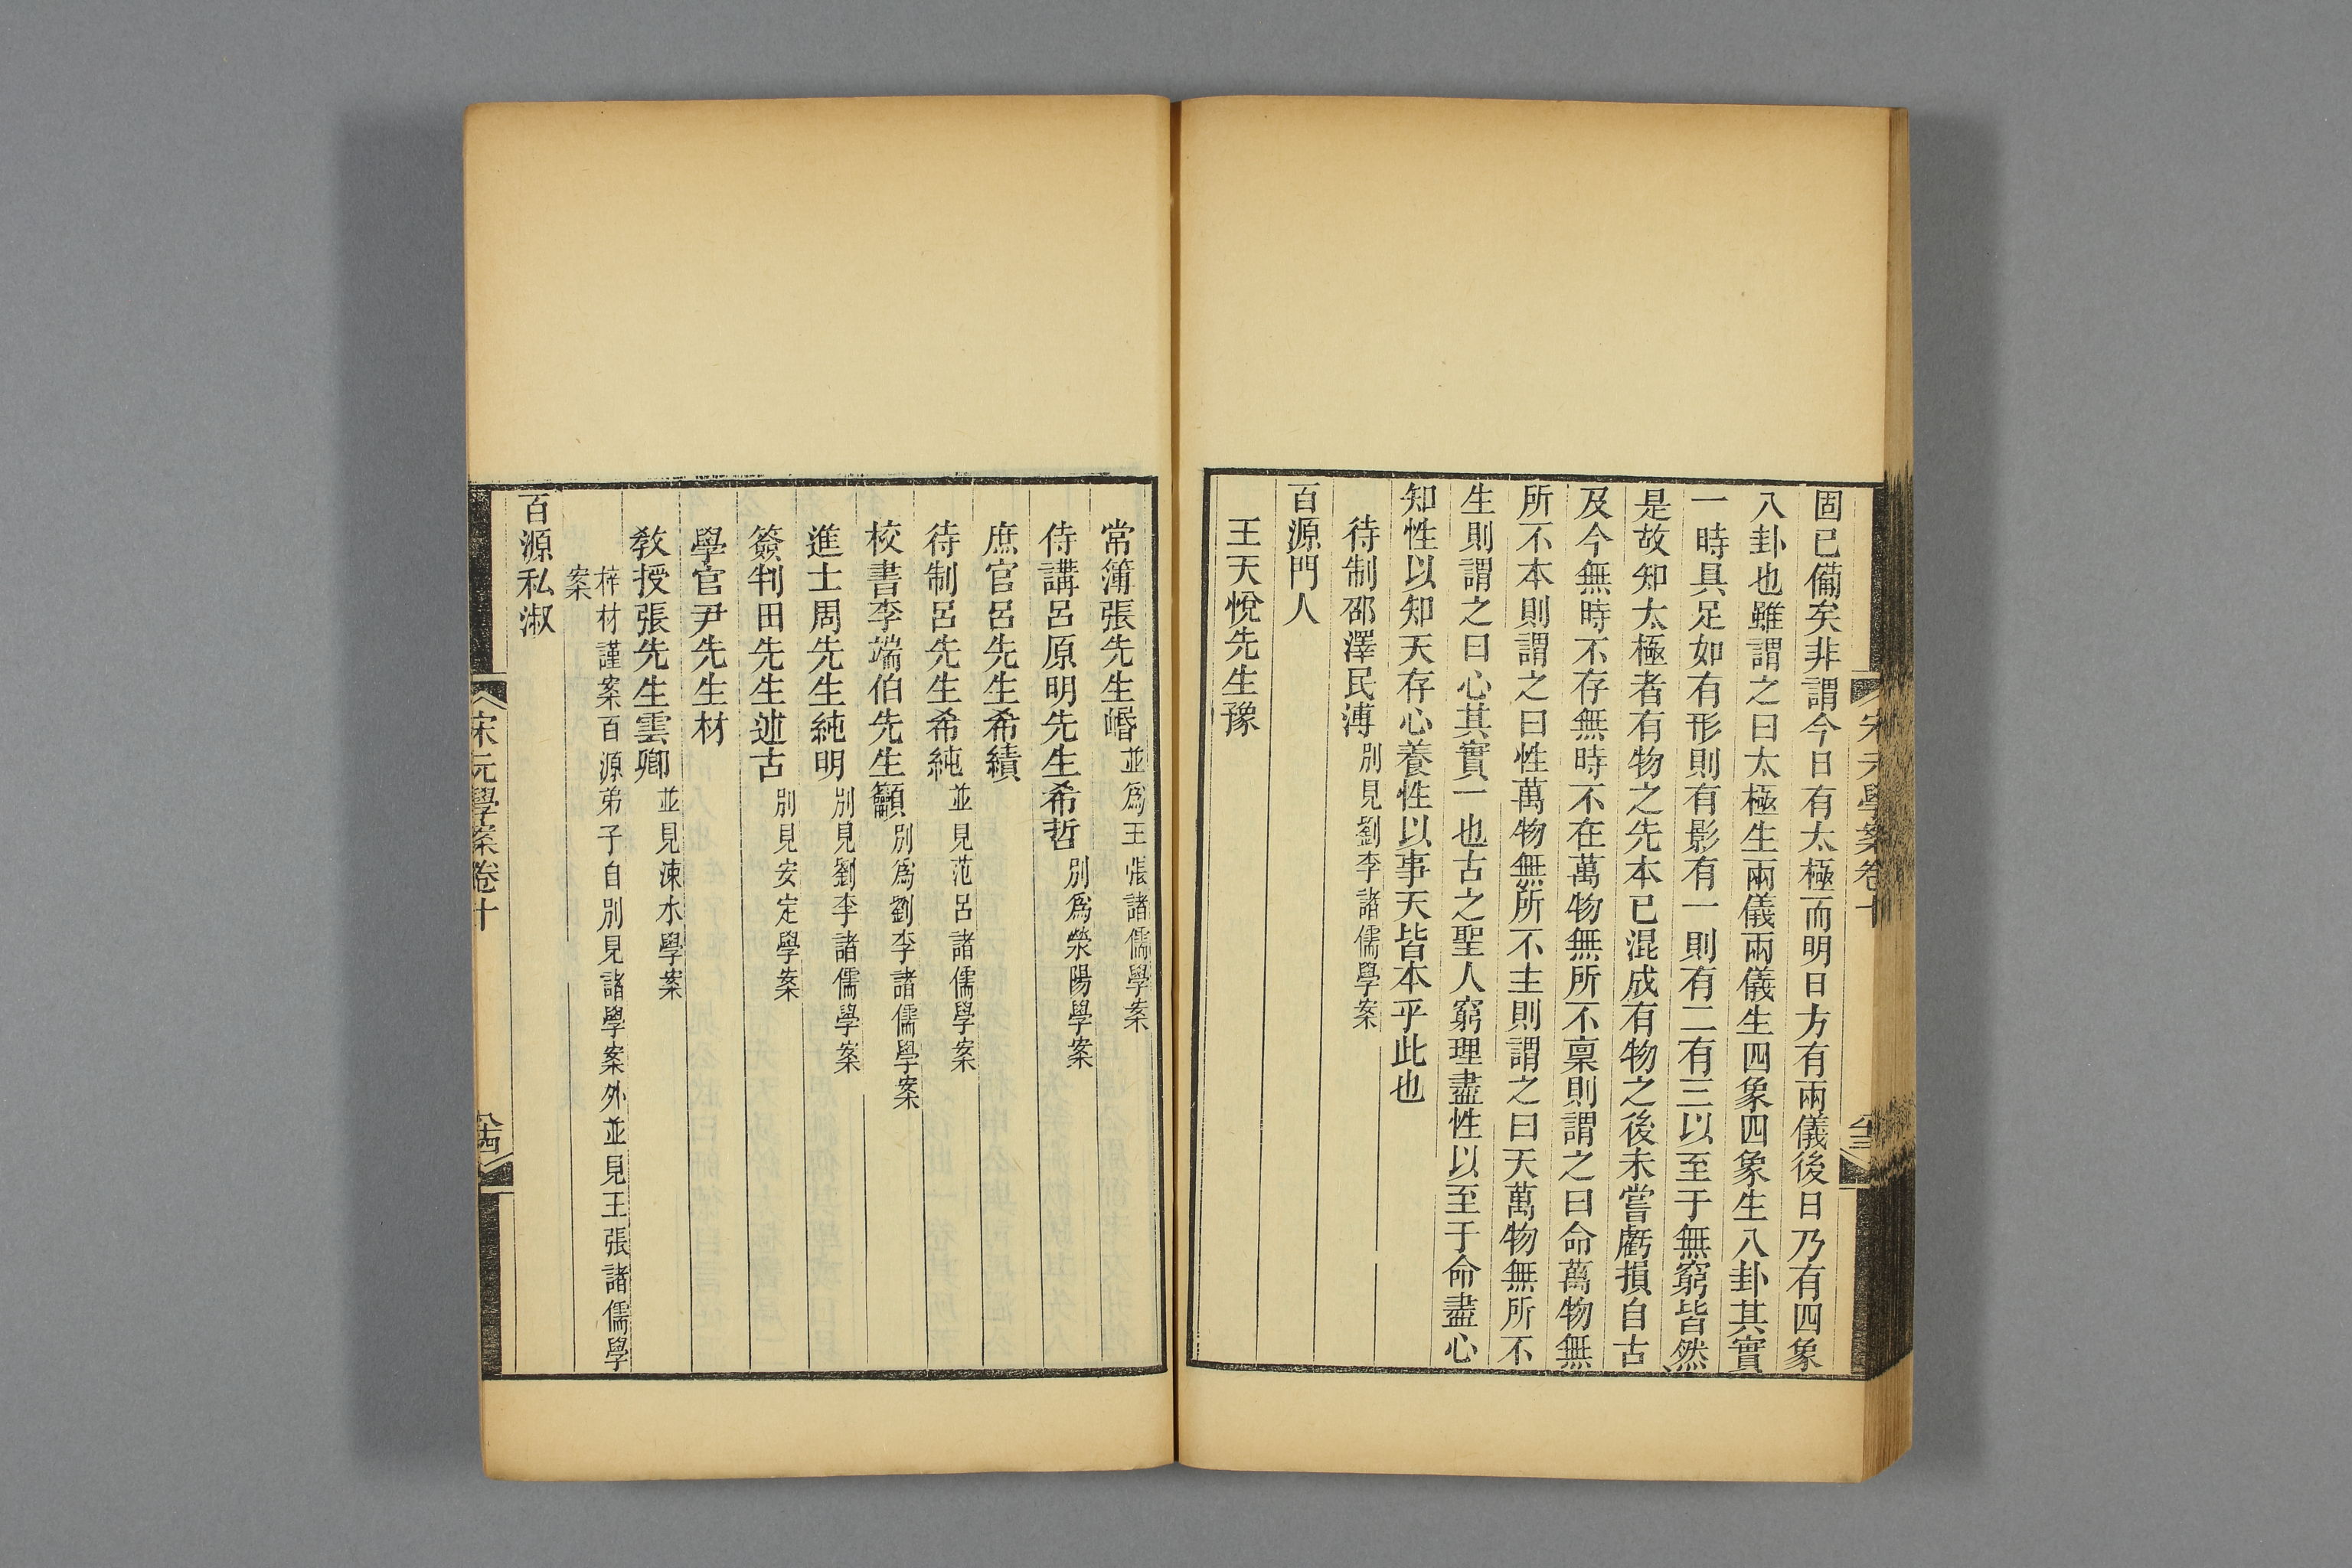 宋元學案卷十
八十三
固已備矣非謂今日有太極而明日方有兩儀後日乃有四象
八卦也雖謂之曰太極生兩儀兩儀生四象四象生八卦其實
一時具足如有形則有影有一則有二有三以至于無窮皆然
是故知太極者有物之先本已混成有物之後未嘗虧損自古
及今無時不存無時不在萬物無所不稟則謂之曰命萬物無
所不本則謂之曰性萬物無所不主則謂之曰天萬物無所不
生則謂之曰心其實一也古之聖人窮理盡性以至于命盡心
知性以知天存心養性以事天皆本乎此也
待制邵澤民溥別見劉李諸儒學案
百源門人
王天悅先生豫
常簿張先生㟭並爲王張諸儒學案
侍講呂原明先生希哲別爲滎陽學案
庶官呂先生希績
待制呂先生希純並見范呂諸儒學案
校書李端伯先生籲別爲劉李諸儒學案
進士周先生純明別見劉李諸儒學案
簽判田先生述古別見安定學案
學官尹先生材
教授張先生雲卿並見涑水學案
梓材謹案百源弟子自別見諸學案外並見王張諸儒學
案
百源私淑
宋元學案卷十
八十四